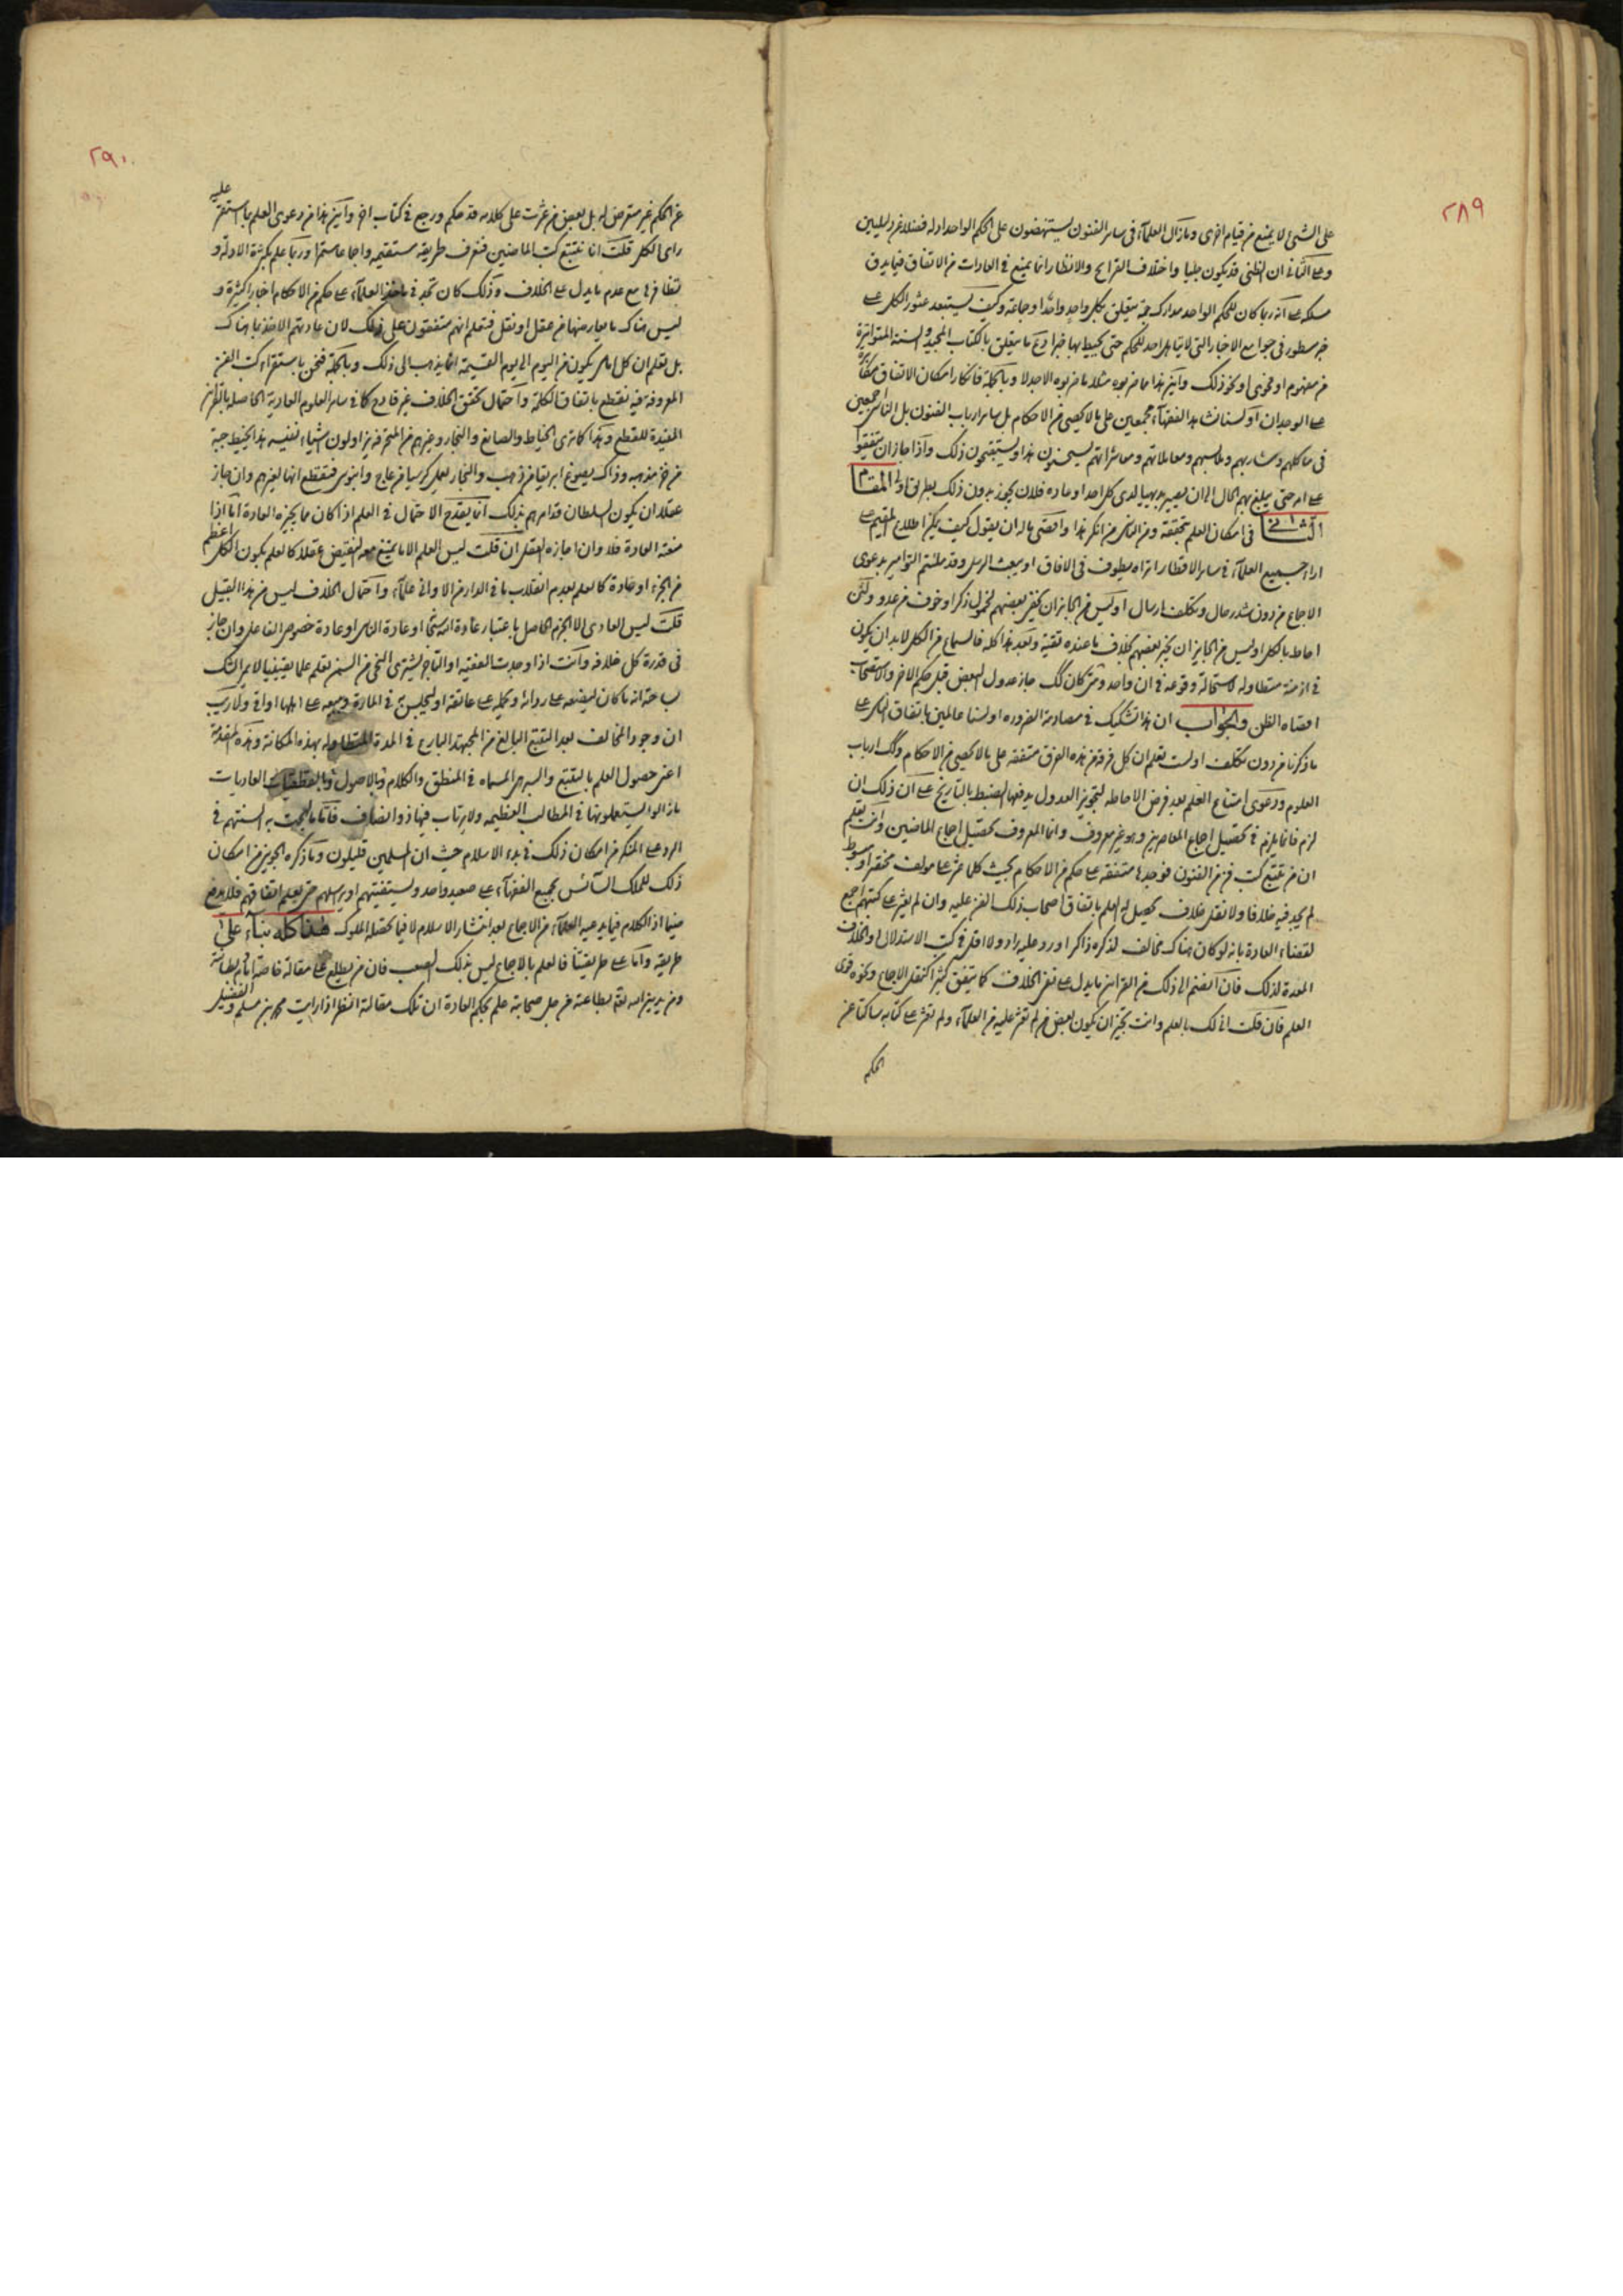 ٢٨٩
على الشئ لا يمنع من قيام اخرى وما زال العلماء في ساير الفنون يستنهضون على الحكم الواحد ادلة فضلا عن دليلين
وعلى الثاني ان الظني قد يكون جليا واختلاف القرايح والانظار انما يمنع في العادات من الاتفاق فيما يدق
مسلكه على انه ربما كان للحكم الواحد مدارك جمة يتعلق بكل واحد واحد او جماعة وكيف يستبعد عثور الكل على
خبر مسطور في جوامع الاخبار التي لا
من مفهوم او فحوى او نحو ذلك واين هذا مما ضربوه مثلا ما ضربوه الا جدلا وبالجملة فانكار امكان الاتفاق مكابرة
على الوجدان او لسنا نشاهد الفقهاء مجمعين على ما لا يحصى من الاحكام بل ساير ارباب الفنون بل الناس اجمعين
في مآكلهم ومشاربهم وملابسهم ومعاملاتهم ومعاشراتهم يستحسنون هذا ويستقبحون ذلك واذا جاز ان يتفقوا
على امر حتى يبلغ بهم الحال الى ان يصير بديهيا لدى كل احد او عادة فلان يجوز بدون ذلك بطريق اولى المقام
الثاني في امكان العلم بتحققه ومن الناس من انكر هذا واقصى ما له ان يقول كيف يمكن اطلاع المقيم على
اراء جميع العلماء في ساير الاقطار اتراه يطوف في الافاق او يبعث الرسل وقد ملئتم الطوامير بدعوى
الاجماع من دون شد رحال وتكلف ارسال او ليس من الجايز ان يخفى بعضهم لخمول ذكر او خوف من عدو ولئن
احاط بالكل او ليس من الجايز ان يخبر بعضهم بخلاف ما عنده تقية وبعد هذا كله فالسماع من الكل لا بد ان يكون
في ازمنة متطاولة لاستحالة وقوعه في ان واحد ومتى كان كك جاز عدول البعض قبل حكم الاخر والاستصحاب
اقصاه الظن والجواب ان هذا تشكيك في مصادمة الضرورة او لسنا عالمين باتفاق الناس على
ما ذكرنا من دون تكلف او لست تعلم ان كل فرقة من هذه الفرق متفقة على ما لا يحصى من الاحكام وكك ارباب
العلوم ودعوى امتناع العلم بعد فرض الاحاطة لتجويز العدول يدفعها الضبط بالتاريخ على ان ذلك ان
لزم فانما يلزم في تحصيل اجماع المعاصرين وهو غير معروف وانما المعروف تحصيل اجماع الماضين وانت تعلم
ان من تتبع كتب فن من الفنون فوجدها متفقة على حكم من الاحكام بحيث كلما عثر على مولف مختصر او مبسوط
لم يجد فيه خلافا ولا نقل خلاف يحصل له العلم باتفاق اصحاب ذلك الفن عليه وان لم يعثر على كتبهم اجمع
لقضاء العادة بانه لو كان هناك مخالف لذكره ذاكر او رد عليه راد ولا اقل في كتب الاستدلال او الخلاف
المعدة لذلك فان انضم الى ذلك من القراين ما يدل على نفي الخلاف كما يتفق كثيرا كنقل الاجماع ونحوه قوى
العلم فان قلت انى لك بالعلم وانت تجيز ان يكون بعض من لم تعثر عليه من العلماء ولم تعثر على كتابه ساكتا عن
الحكم
٢٩٠
عن الحكم غير متعرض له بل بعض من عثرت على كلامه قد حكم ورجع في كتاب اخر واين هذا من دعوى العلم باستقر عليه
راى الكل قلت انا نتتبع كتب الماضين فنعرف طريقة مستقيمة واجماعا مستمرا وربما علم بكثرة الادلة و
تظافرها مع عدم ما يدل على الخلاف وذلك كان تجد في العلماء على حكم من الاحكام اخبارا كثيرة و
ليس هناك ما يعارضها من عقل او نقل فتعلم انهم متفقون على ذلك لان عادتهم الاخذ بما هناك
بل تعلم ان كل يكون من اليوم الى يوم القيمة انما يذهب الى ذلك وبالجملة فنحن باستقراء كتب الفن
المعروفة فيه نقطع باتفاق الكلمة واحتمال تحقق الخلاف غير قادح كما في ساير العلوم العادية الحاصلة بالقراين
المفيدة للقطع وهذا كما ترى الخياط والصايغ والنجار وغيرهم من المحترفة يزاولون اشياء نفيسة هذا يخيط جبة
من خز مذهبة وذاك يصوغ ابريقا من ذهب والنجار يعمل كرسيا من عاج وابنوس فتقطع انها لغيرهم وان جاز
عقلا ان يكون السلطان قد امرهم بذلك انما يقدح الاحتمال في العلم اذا كان مما يجيزه العادة اما اذا
منعته العادة فلا وان اجازه العقل ان قلت ليس العلم الا ما يمتنع معه النقيض عقلا كالعلم بكون الكل اعظم
من الجزء او عادة كالعلم بعدم انقلاب ما في الدار من الاواني علماء واحتمال الخلاف ليس من هذا القبيل
قلت ليس العادى الا الجزم الحاصل باعتبار عادة الله سبحانه او عادة الناس او عادة خصوص الفاعل وان جاز
في قدرة كل خلافه وانت اذا وجدت الفقيه او التاجر يشترى النحى من السمن تعلم علما يقينيا لا يمر الشك
بساحته انه ما كان ليضعه على ردائه ويحمله على عاتقه او ليجلس في المارة ويبيعه على اهلها اواقي ولا ريب
ان وجود المخالف بعد التتبع البالغ من المجتهد البارع في المدة المتطاولة بهذه المكانة وهذه المقدمة
اعني حصول العلم بالتتبع والسبر هي المسماة في المنطق والكلام وبالاصول وبالقطعيات العاديات
ما زالوا يستعملونها في المطالب العظيمة ولا يرتاب فيها ذو انصاف فاما ما لهجت به السنتهم في
الرد على المنكر من امكان ذلك في بدء الاسلام حيث ان المسلمين قليلون وما ذكره الجويني من امكان
ذلك للملك السائس بجمع الفقهاء على صعيد واحد ويستفتيهم او يراسلهم حتى يعلم اتفاقهم فلا يدفع
ضيما اذ الكلام فيما يدعيه العلماء من الاجماع بعد انتشار الاسلام لا فيما تحصله الملوك هذا كله بناء على
طريقة واما على طريقتنا فالعلم بالاجماع ليس بذلك الصعب فان من يطلع على مقالة خاصة امام بطانته
ومن يدين الله تعالى بطاعته من جل صحابته علم بحكم العادة ان تلك مقالته انظر اذا رايت محمد بن مسلم والفضيل